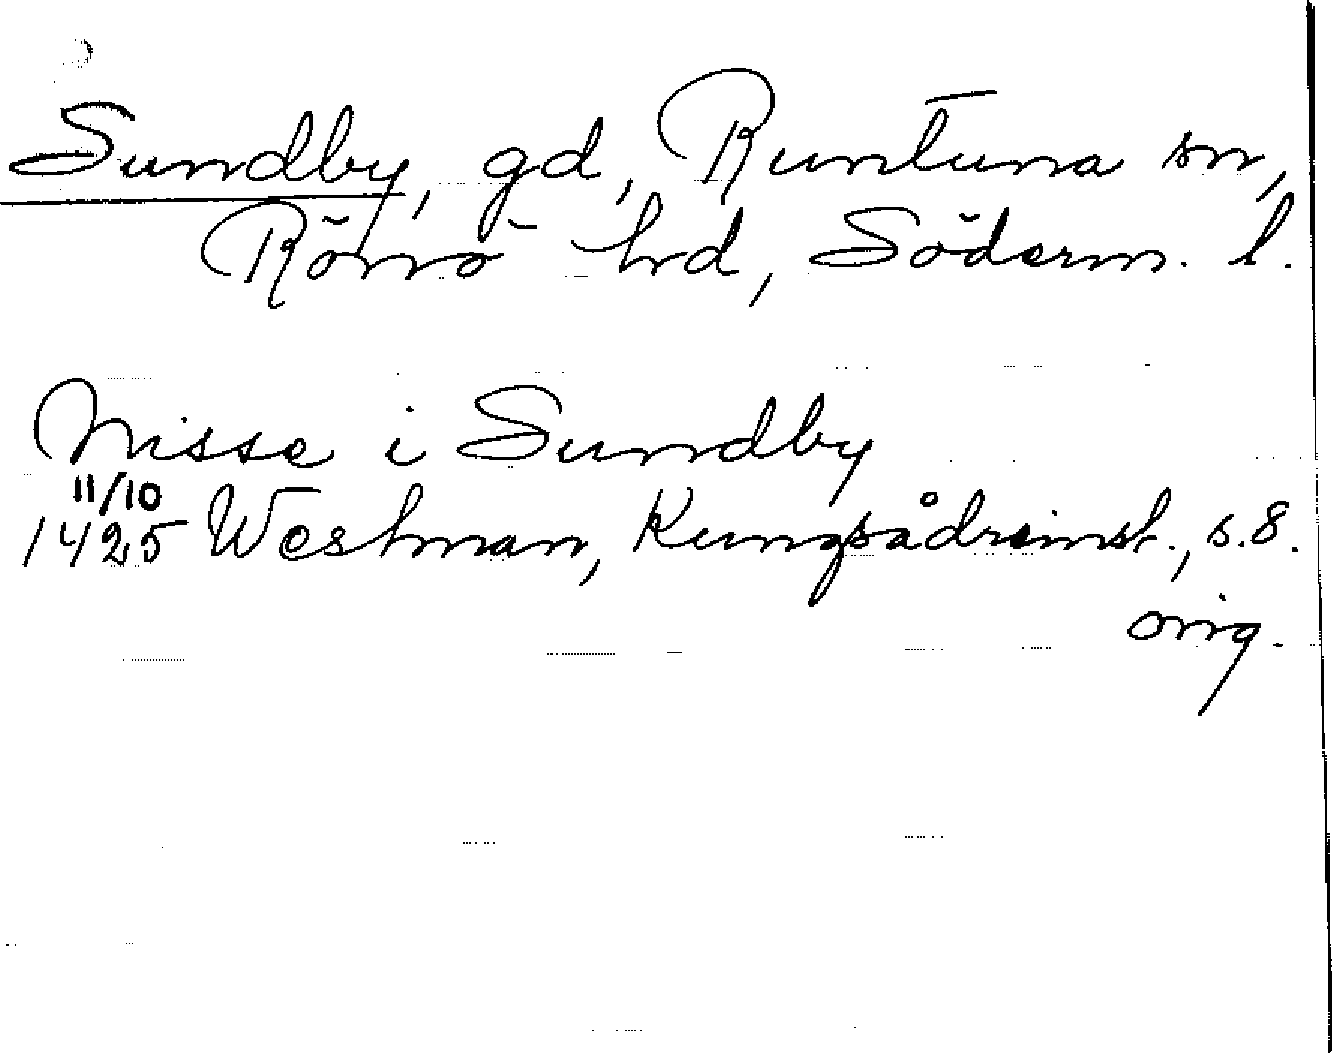 Sundby, gd, Runtuna sn,
Rönö hd, Söderm. l.
Nisse i Sundby
11/10
1425 Westman, Kungsådreinst., s. 8.
orig.